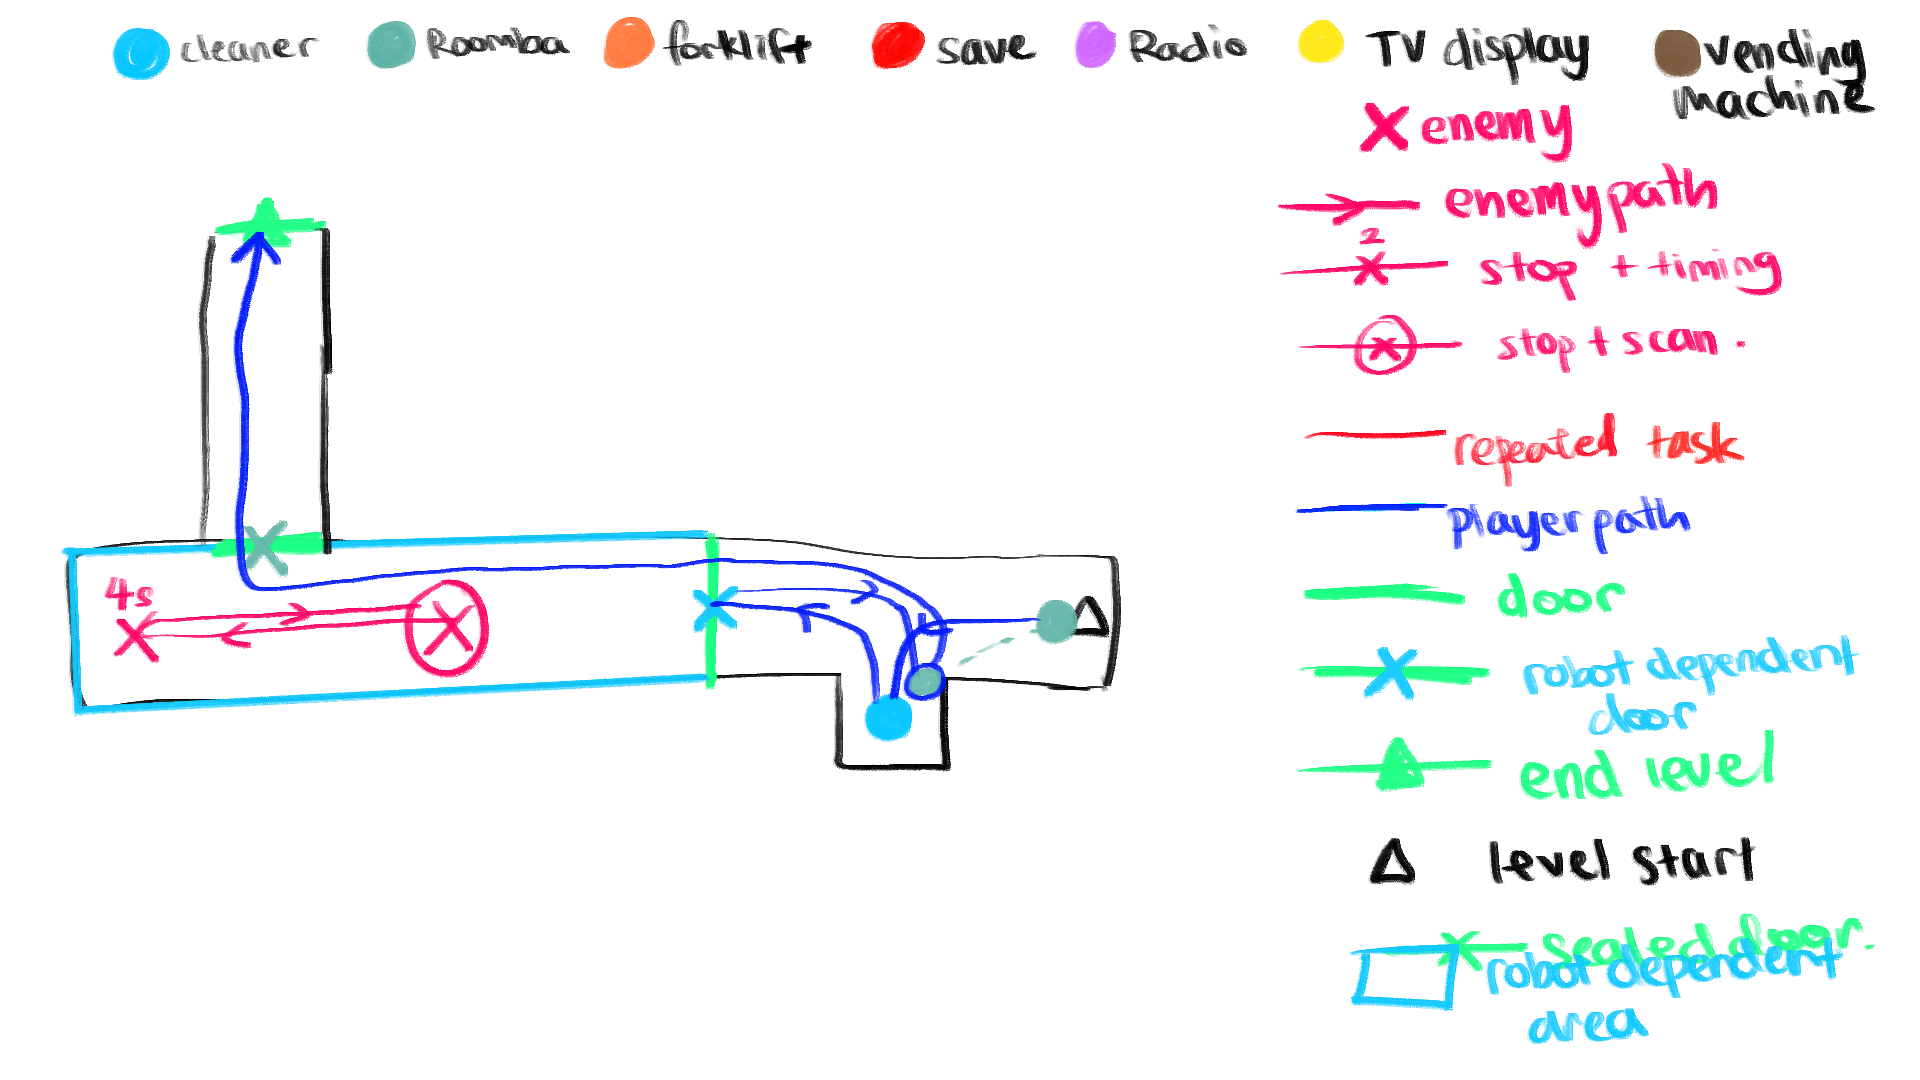 cleaner
Roomba
forklift
save
Radio
TV display
vending
machine
enemy
enemy path
2
stop + timing
stop + scan.
repeated task
player path
door
robot dependent
door
end level
level start
sealed door.
robot dependent
area
4s